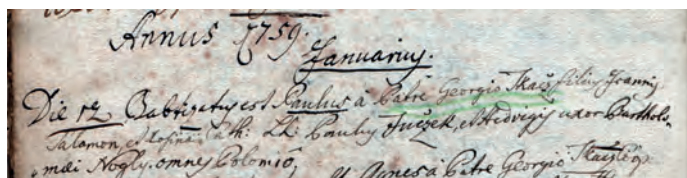 Annus 1759.
Januarius.
Die 12 Babtizatus est Paulus à Patre Georgio Tkacz filius Joannis
Salamon, et Rosina Cath: LL: Paulus Juczek, et Hedvigis uxor Bartholo-
mæi Nogly. omnes Polomió,
Agnes à Patre Georgio